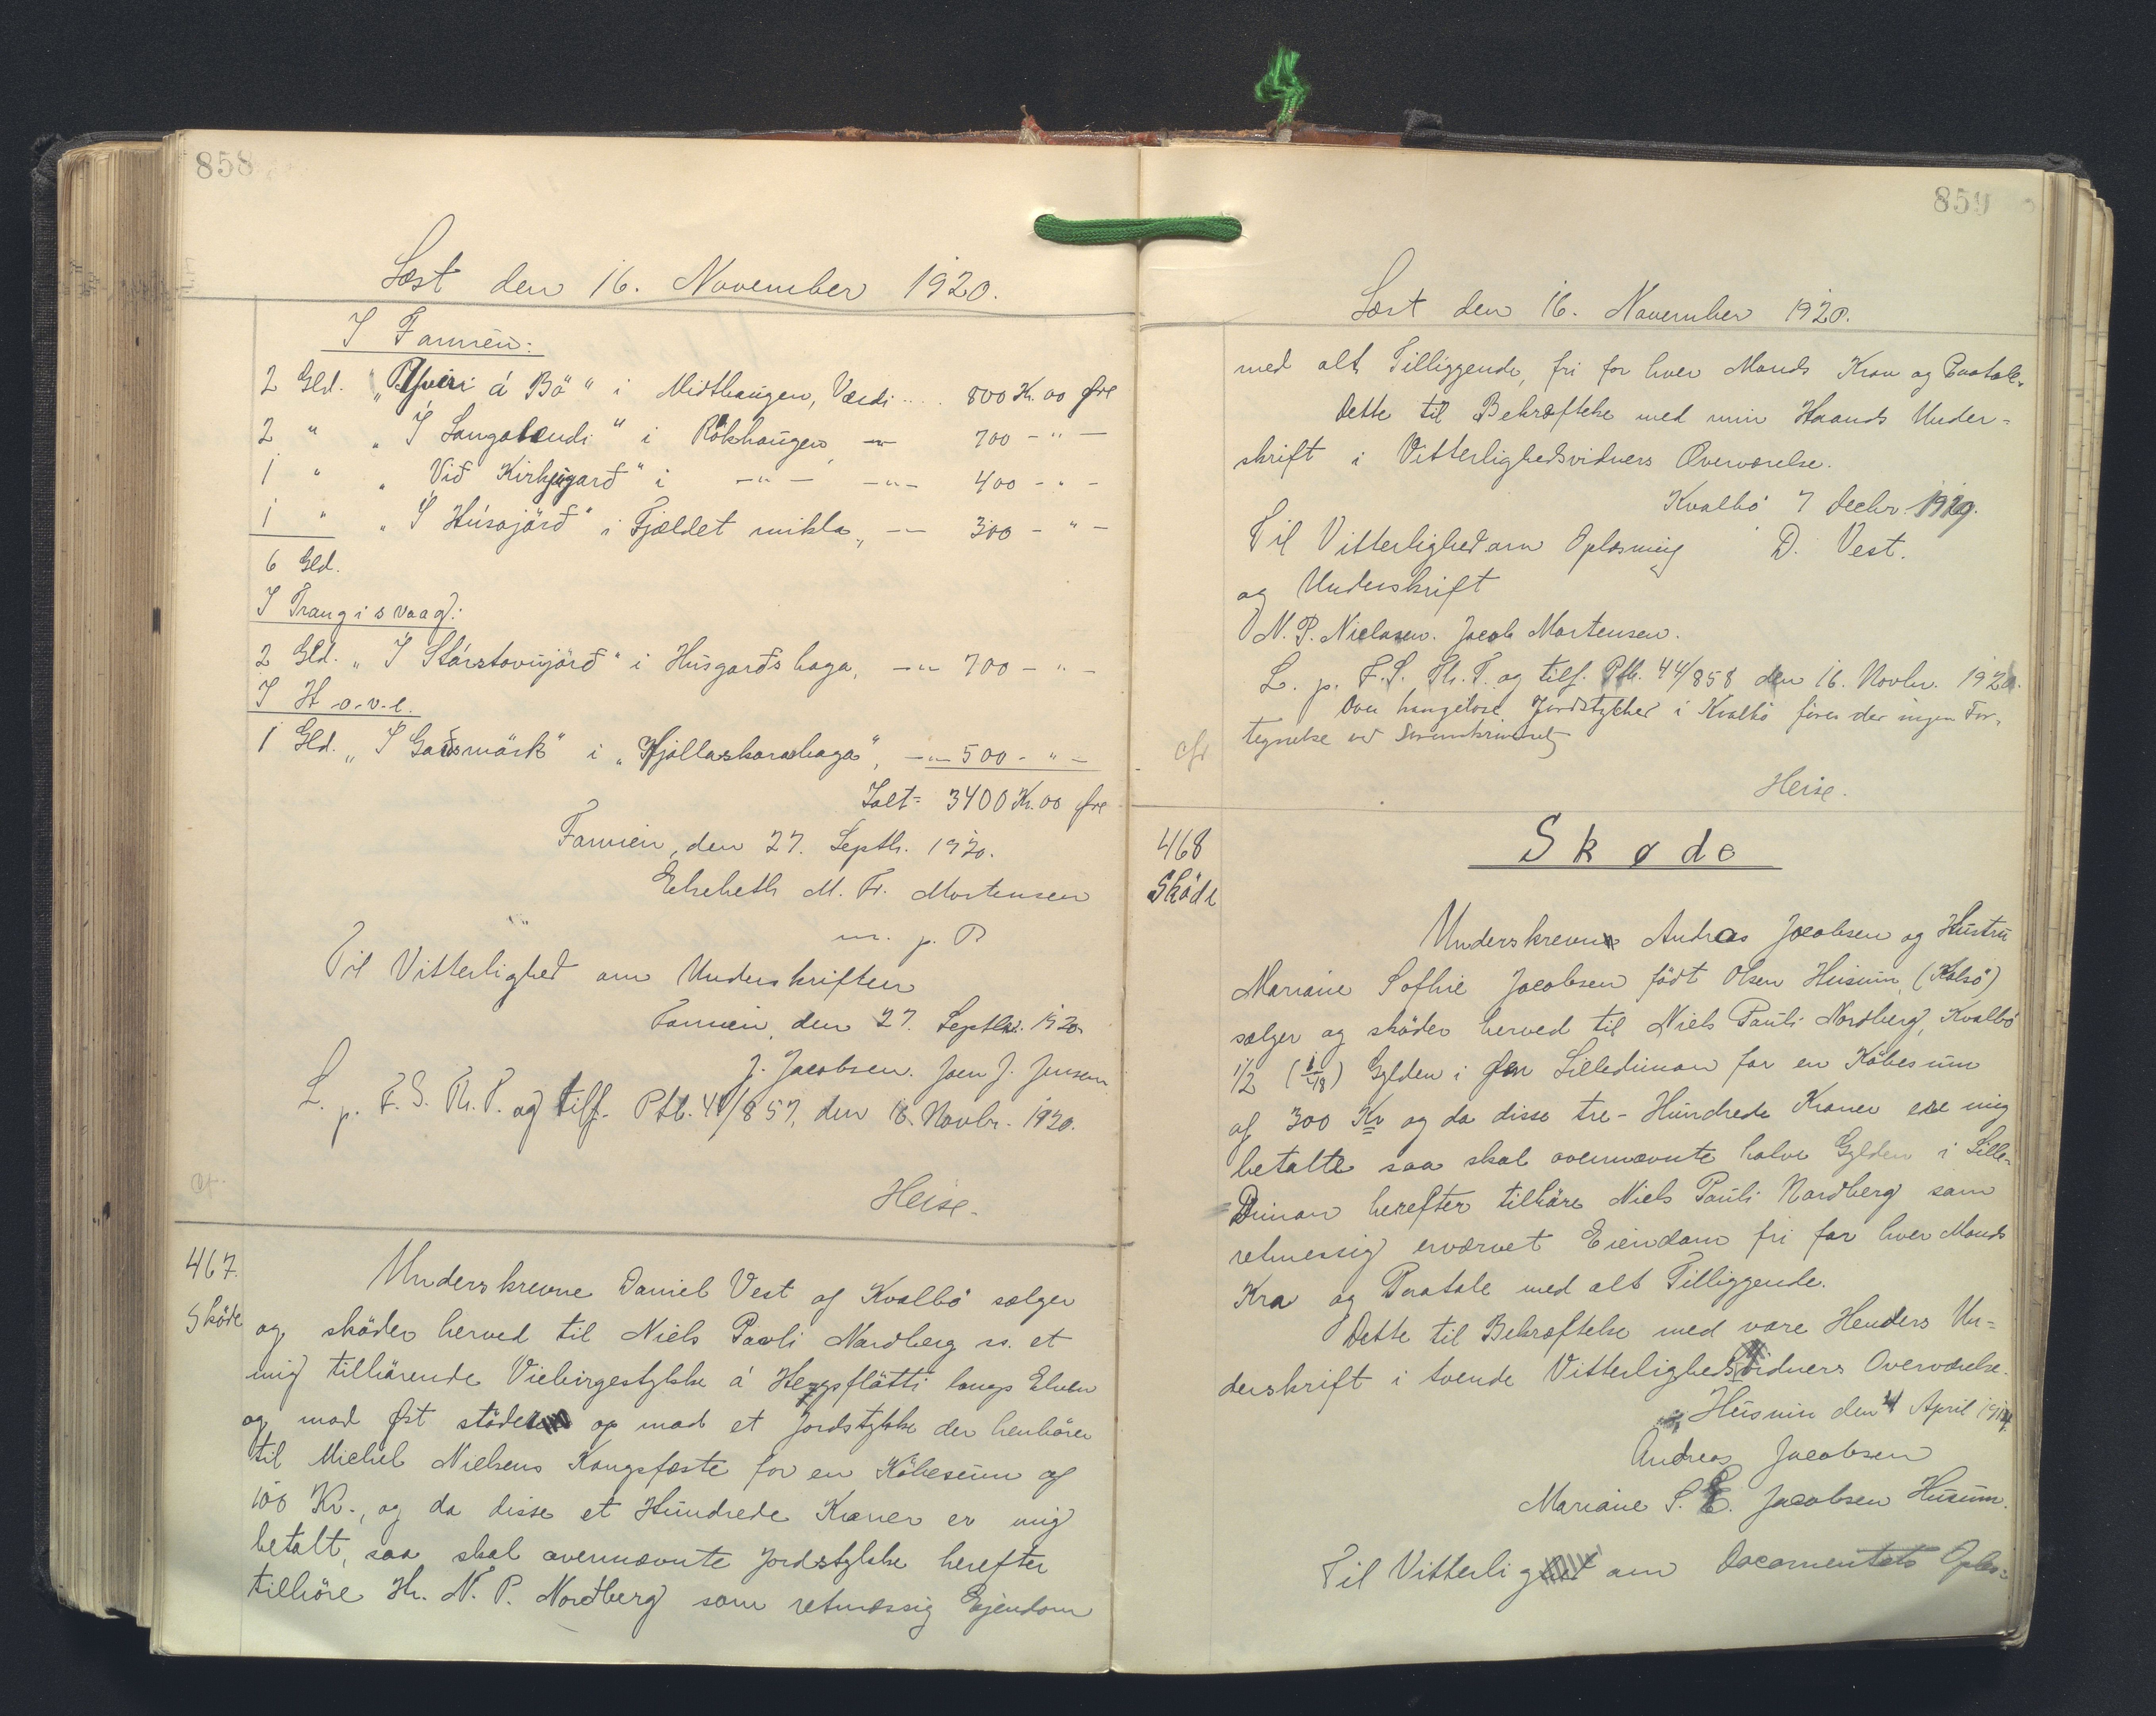 858
Læst den 16. November 1920.
I Famien:
2 Gld. „Yviri á Bö“ i Midthaugen, Værdi .... 800 Kr. 00 Øre
2 " „I Langalendi“ i Rókhaugen, -"- 700 - " -
1 " „Við Kirkjugarð“ i -"- -"- 400 - " -
1 " „I Húsajörð“ i Fjældet mikla, -"- 300 - " -
6 Gld.
I Trangisvaag:
2 Gld. „I Stórstovujörð“ i Húsgarðshaga, -"- 700 - " -
I Hove.
1 Gld. „I Garðsmörk“ i „Hjallaskorahaga“, -"- 500 - " -
Ialt = 3400 Kr. 00 Øre
Famien, den 27. Septb. 1920.
Elsebeth M. Fr. Mortensen
m. p. P
Til Vitterlighed om Underskriften
Famien, den 27. Septbr. 1920.
J. Jacobsen. Joen J. Jensen
L. p. F. S. Th. T. og tilf. Ptb. 44/857, den 16. Novbr. 1920.
cfr.
Heise.
467.
Sköde
Underskrevne Daniel Vest af Kvalbö sælger
og sköder herved til Niels Pauli Nordberg ss. et
mig tilhörende Viebirgestykke á Hegsflötti langs Elven
og mod Øst stöder op mod et Jordstykke der henhörer
til Michel Nielsens Kongsfæste for en Köbesum af
100 Kr., og da disse et Hundrede Kroner er mig
betalt, saa skal ovennævnte Jordstykke herefter
tilhöre Hr. N. P. Nordberg som retmæssig Ejendom
859
Læst den 16. November 1920.
med alt Tilliggende, fri for hver Mands Krav og Paatale.
Dette til Bekræftelse med min Haands Under-
skrift i Vitterlighedsvidners Overværelse.
Kvalbö 7 Decbr. 1919.
Til Vitterlighed om Oplæsning D. Vest.
og Underskrift
N. P. Nielasen. Jacob Mortensen.
L. p. F. S. Th. T. og tilf. Ptb. 44/858 den 16. Novbr. 1920.
Over haugelöse Jordstykker i Kvalbö föres der ingen For-
tegnelse ved Sorenskriveriet
cfr
Heise.
468
Sköde
Skøde
Underskrevne Andreas Jacobsen og Hustru
Mariane Sofhie Jacobsen födt Olsen Husum, (Kalsö)
sælger og sköder herved til Niels Pauli Nordberg, Kvalbö
1/2 (1/48) Gylden i Lilledimon for en Köbesum
af 300 Kr og da disse tre-Hundrede Kroner ere mig
betalte saa skal ovennævnte halve Gylden i Lille-
Dimon herefter tilhöre Niels Pauli Nordberg som
retmessig erværvet Eiendom fri for hver Mands
Kra og Paatale med alt Tilliggende.
Dette til Bekræftelse med vore Henders Un-
derskrift i tvende Vitterlighedsvidners Overværelse.
Husum den 4 April 1914.
Andreas Jacobsen
Mariane S. E. Jacobsen Husum.
Til Vitterlig om Documentets Oplæs-